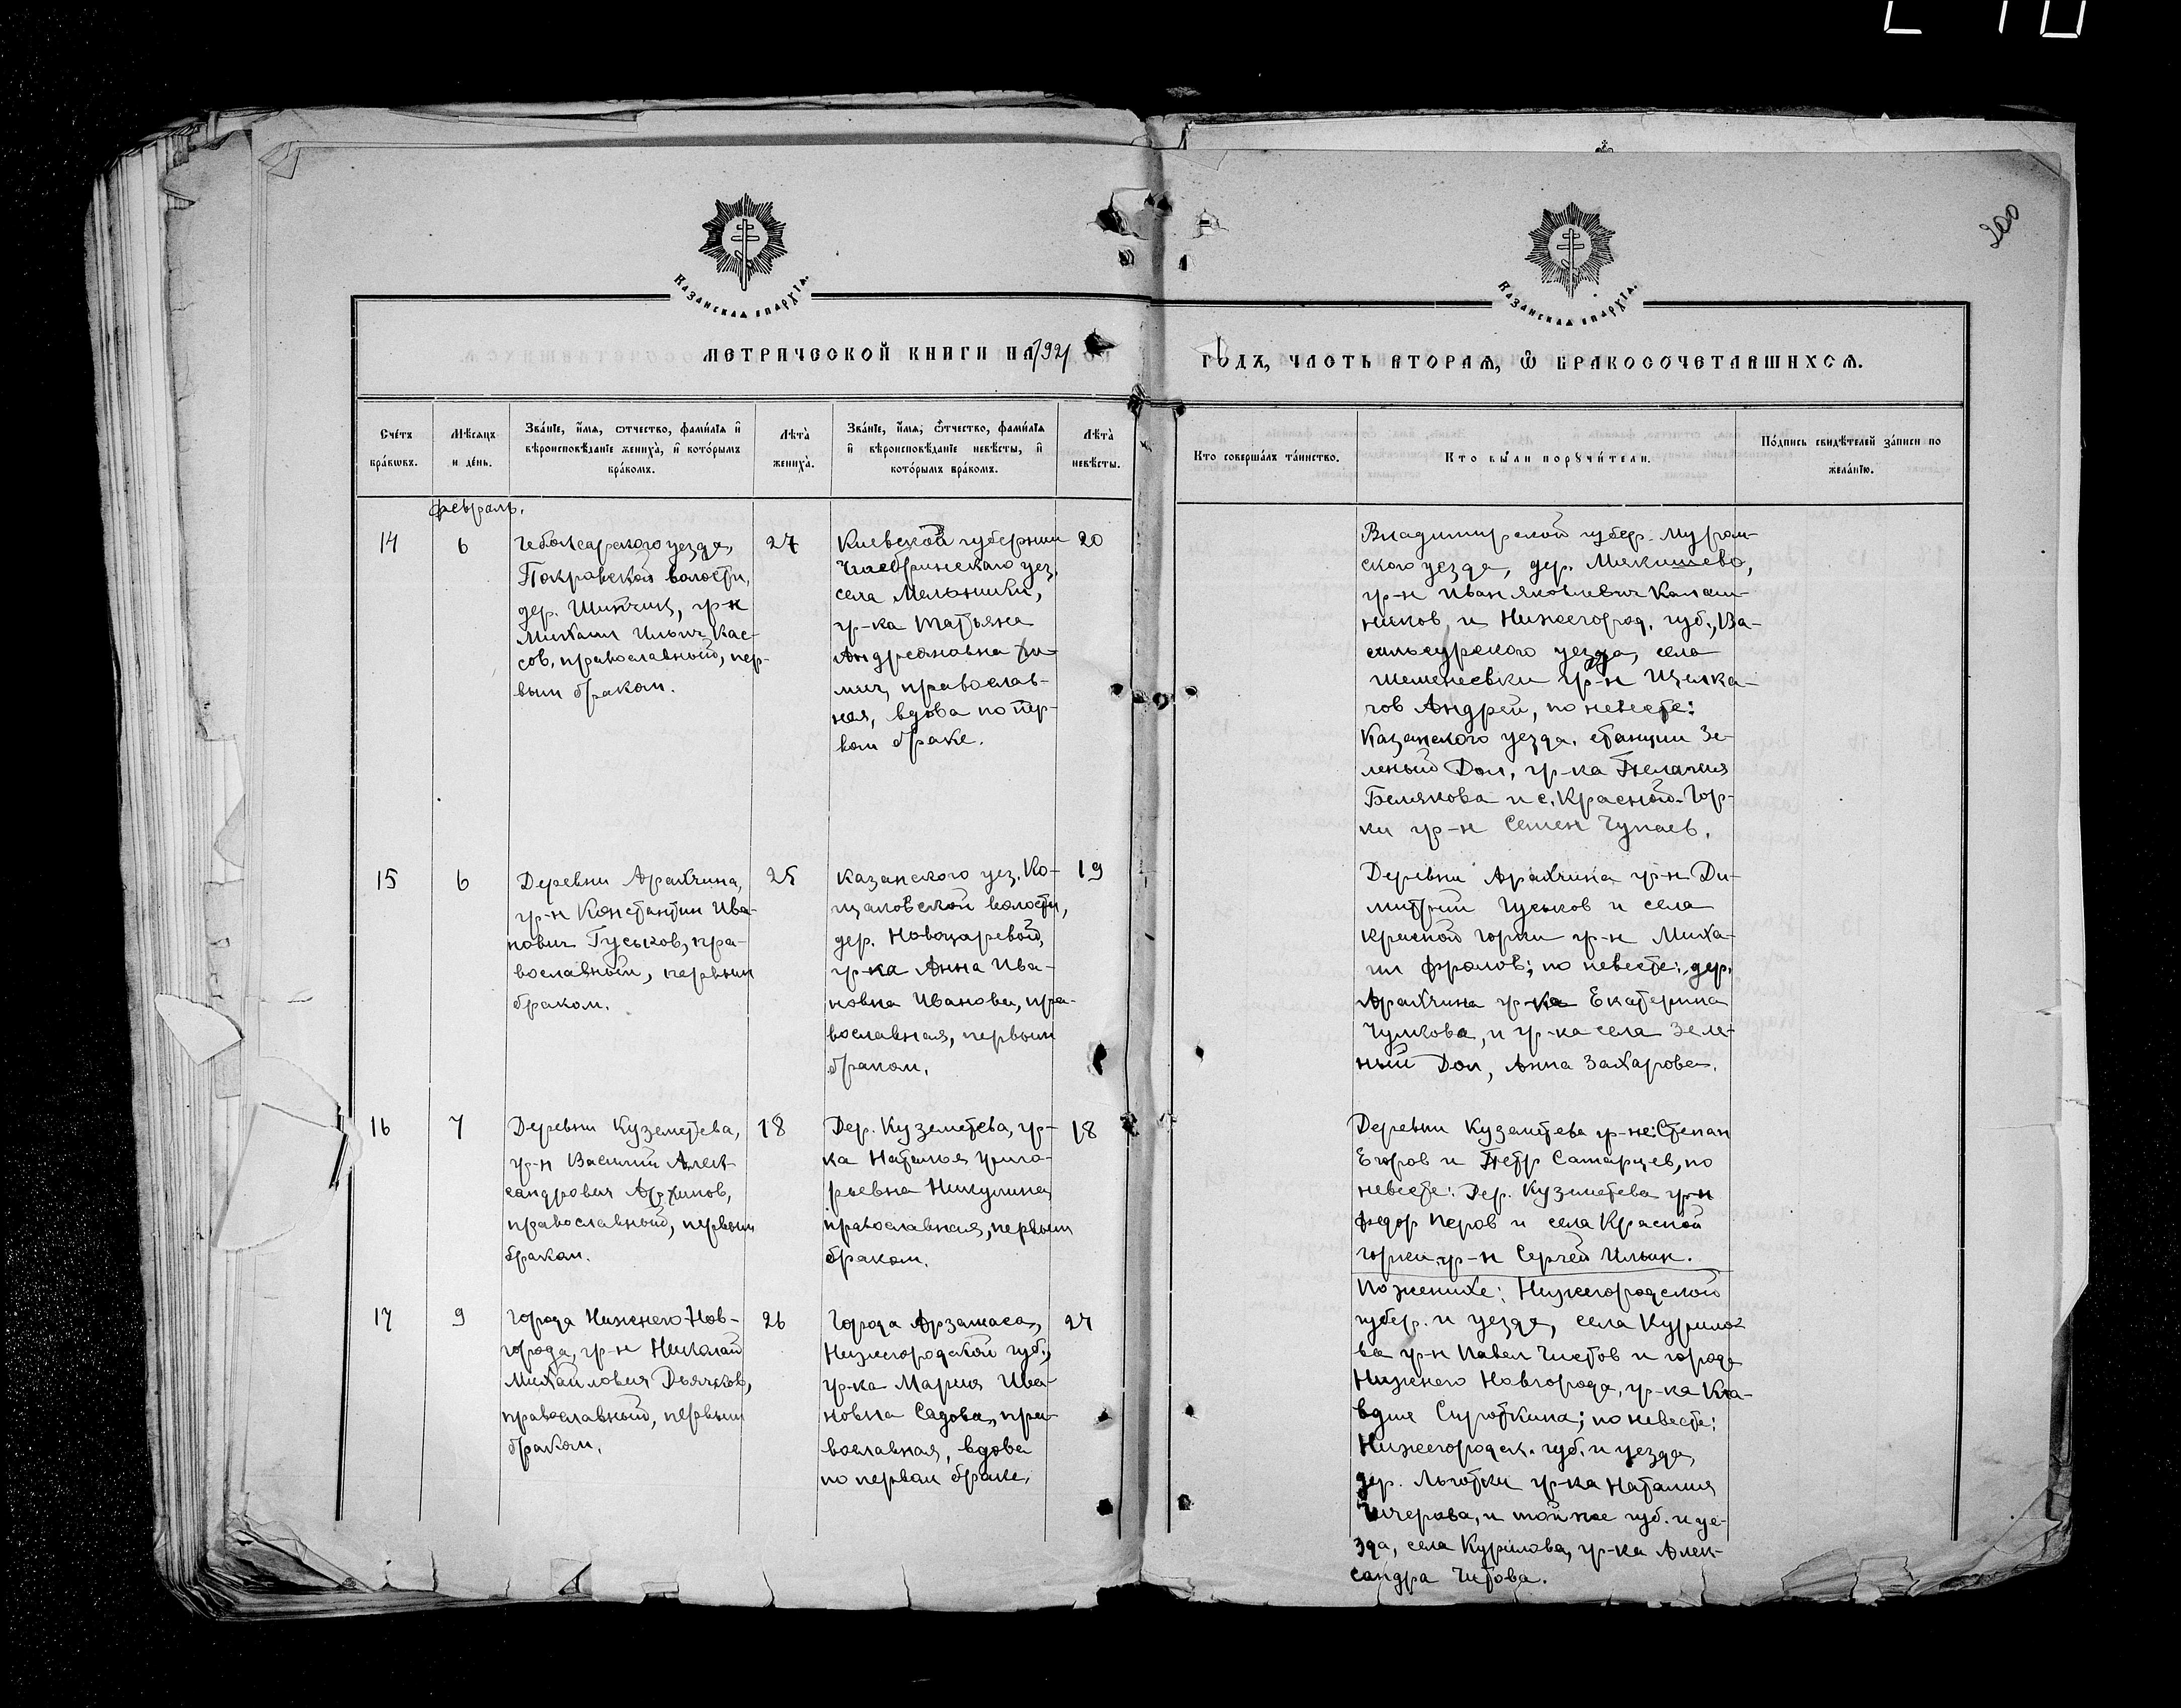 200
Казанская епархїа.
Казанская епархїа.
Метрической книги на 1921
годъ, часть вторая, ѡ бракосочетавшихся.
Счетъ браковъ.
Мѣсяцъ и день.
Званїе, имя, ѡтчество, фамилїя и вѣроисповѣданїе жениха, и которымъ бракомъ.
Лѣта жениха.
Званїе, имя, ѡтчество, фамилїя и вѣроисповѣданїе невѣсты, и которымъ бракомъ.
Лѣта невѣсты.
Кто совершалъ таинство.
Кто были поручители.
Подпись свидѣтелей записи по желанїю.
февраль.
14
6
Чебоксарского уезда,
Покровской волости,
дер. Шипчик, гр-н
Михаил Ильич Кас-
сов, православный, пер-
вым браком.
27
Киевской губернии
уез,
села Мельники,
гр-ка Татьяна
Андреяновна
православ-
ная, вдова по пер-
вом браке.
20
Владимирской губер. Муром-
ского уезда, дер. Мякишево,
гр-н Иван Яковлевич Калаш-
ников, и Нижегород. губ., Ва-
сильсурского уезда, села
гр-н Щелка-
нов Андрей, по невесте:
Казанского уезда, станции Зе-
леный Дол, гр-ка Пелагия
Белякова и с. Красной-Гор-
ки гр-н Семен Чупаев.
15
6
Деревни Арахчина,
гр-н Константин Ива-
нович Гуськов, пра-
вославный, первым
браком.
25
Казанского уез. Ко-
щаковской волости,
дер. Новоцаревой,
гр-ка Анна Ива-
новна Иванова, пра-
вославная, первым
браком.
19
Деревни Арахчина гр-н Ди-
митрий Гуськов и села
Красной горки гр-н Миха-
ил Фролов; по невесте: дер.
Арахчина гр-ка Екатерина
Чулкова, и гр-ка села Зеле-
ный Дол, Анна Захарова.
16
7
Деревни Куземетева,
гр-н Василий Алек-
сандрович Архипов,
православный, первым
браком.
18
Дер. Куземетева, гр-
ка Наталья Григо-
рьевна Никулина,
православная, первым
браком.
18
Деревни Куземетева гр-не: Степан
Егоров и Петр Самарцев, по
невесте: Дер. Куземетева гр-н
Федор Перов и села Красной
горки гр-н Сергей Ильин.
17
9
Города Нижнего-Нов-
города, гр-н Николай
Михайлович Дьячков,
православный, первым
браком.
26
Города Арзамаса,
Нижегородской губ.,
гр-ка Мария Ива-
новна Садова, пра-
вославная, вдова
по первом браке.
27
По женихе: Нижегородской
губер. и уезда, села Курило-
ва гр-н Павел Чистов и города
Нижнего Новгорода, гр-ка Кла-
вдия Сироткина; по невесте:
Нижегородск. губ. и уезда,
дер. Льготки гр-ка Наталия
Чичерова, и той же губ. и уе-
зда, села Курилова, гр-ка Алек-
сандра